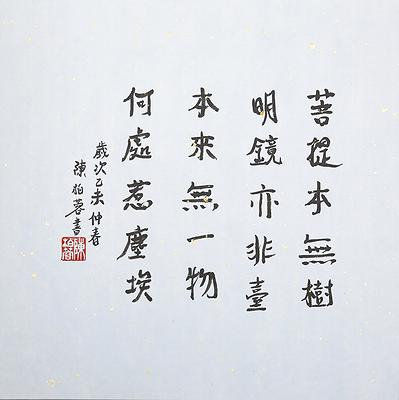 菩提本無樹
明鏡亦非臺
本來無一物
何處惹塵埃
歲次乙未仲春
陳柏蓉書